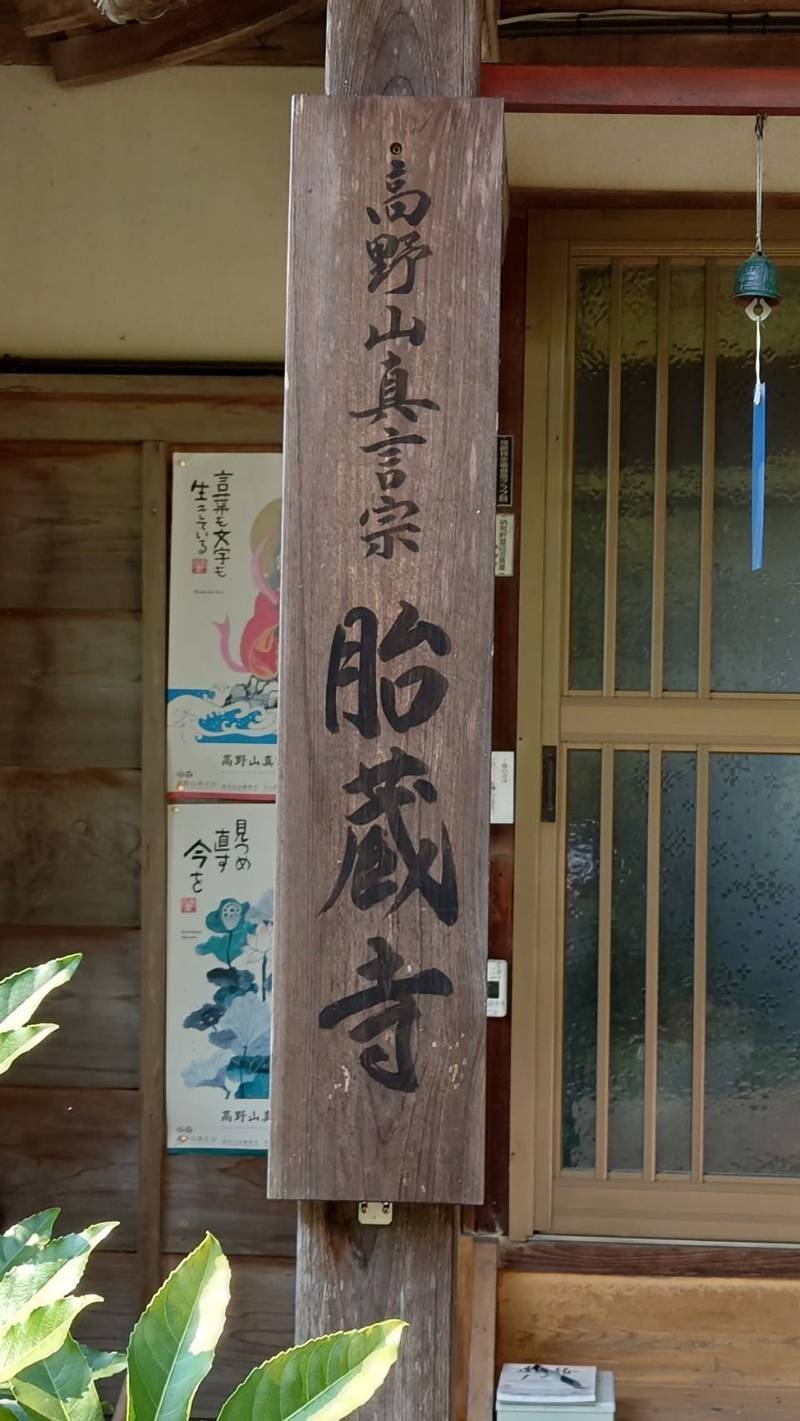 高野山真言宗 胎蔵寺
言葉も文字も
生きている
高野山真
見つめ
直す
今を
高野山真